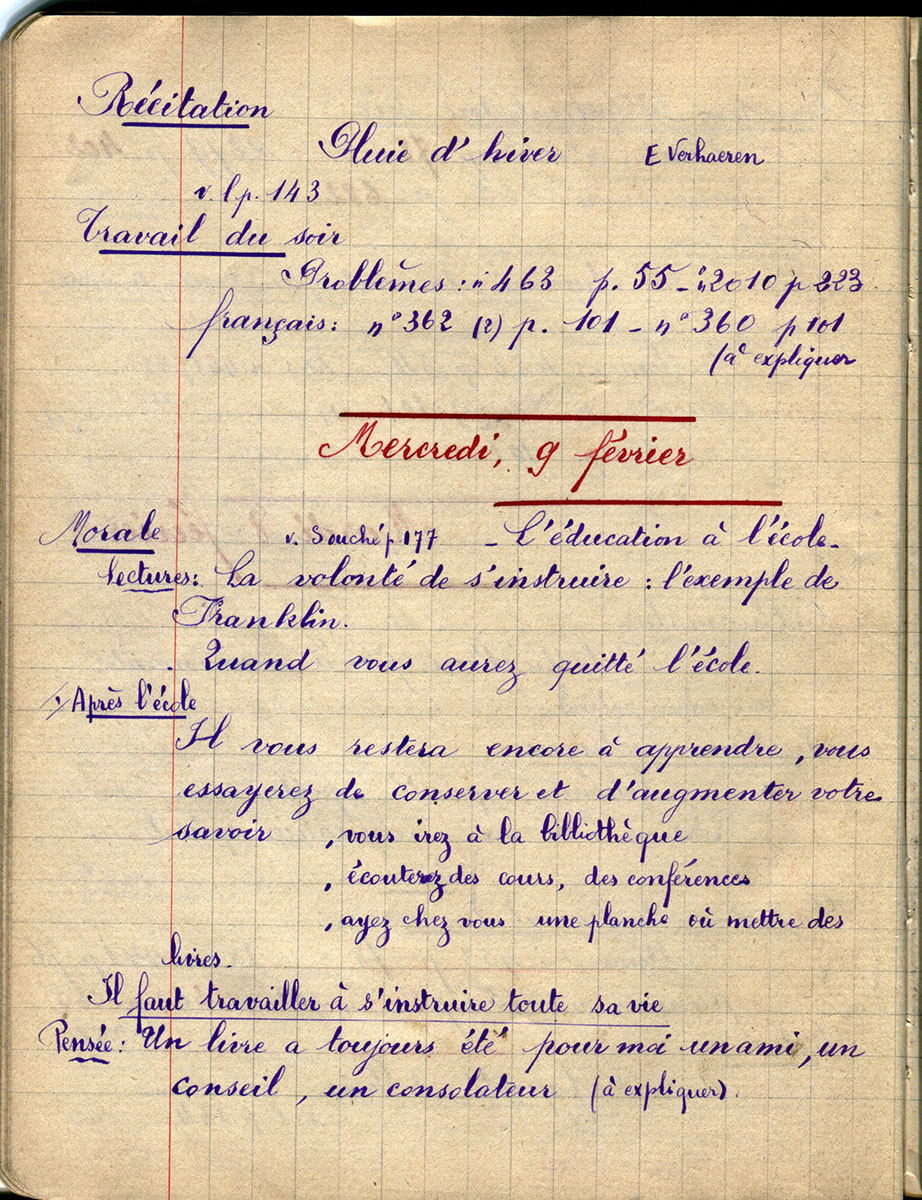 Récitation
Pluie d'hiver E Verhaeren
v. l p. 143
Travail du soir
Problèmes : n° 463 p. 55 - n° 2010 p 223
français : n° 362 (2) p. 101 - n° 360 p 101
(à expliquer
Mercredi, 9 février
Morale v. Souché p 177 - L'éducation à l'école.
Lectures : La volonté de s'instruire : l'exemple de
Franklin.
. Quand vous aurez quitté l'école.
Après l'école
Il vous restera encore à apprendre, vous
essayerez de conserver et d'augmenter votre
savoir , vous irez à la bibliothèque
, écouterez des cours, des conférences
, ayez chez vous une planche où mettre des
livres.
Il faut travailler à s'instruire toute sa vie
Pensée : Un livre a toujours été pour moi un ami, un
conseil, un consolateur (à expliquer).